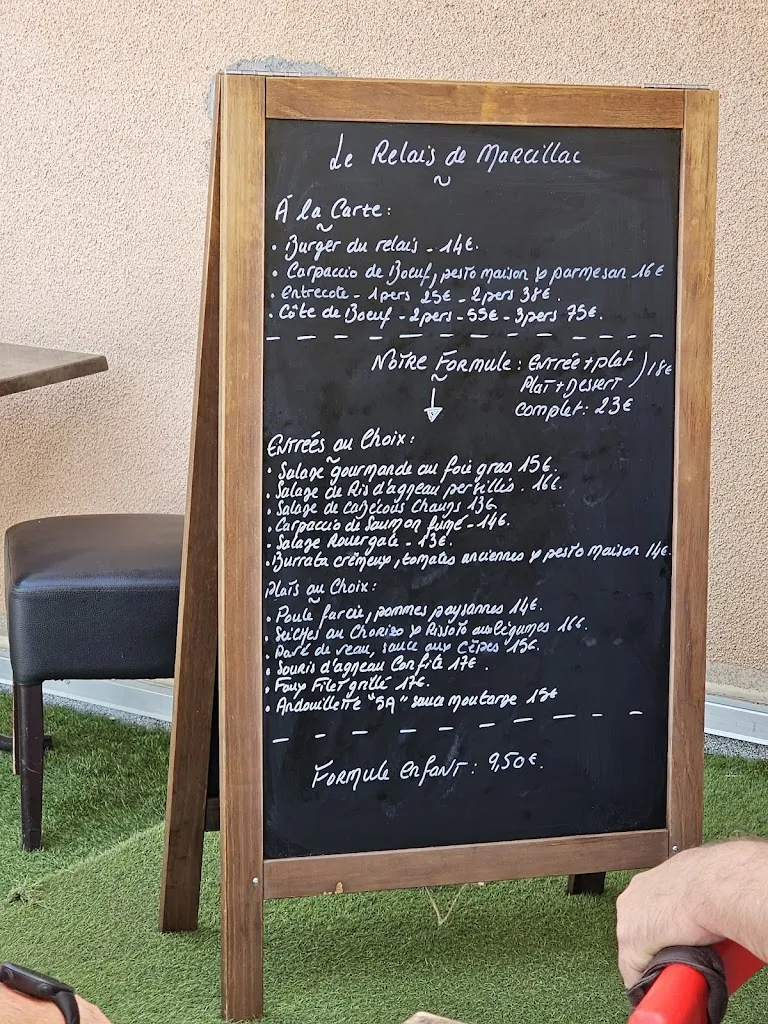 Le Relais de Marcillac
~
À la Carte:
• Burger du relais - 14€.
• Carpaccio de Boeuf, pesto maison & parmesan 16€
• Entrecote - 1pers 25€ - 2pers 38€.
• Côte de Boeuf - 2pers - 55€ - 3pers 75€.
Notre Formule: Entrée + plat
Plat + Dessert ) 18€
Complet: 23€
Entrées au Choix:
• Salade gourmande au foie gras 15€.
• Salade de Ris d'agneau persillés. 16€.
• Salade de cabécous chauds 13€
• Carpaccio de Saumon fumé - 14€.
• Salade Rouergate - 13€.
• Burrata crémeux, tomates anciennes & pesto maison 14€.
Plats au Choix:
• Poule farcie, pommes paysannes 14€.
• Seiches au Chorizo & Risoto aux légumes 16€.
• Pavé de veau, sauce aux cèpes 15€.
• Souris d'agneau Confite 17€.
• Faux Filet grillé 17€.
• Andouillette "5A" sauce moutarde 15€
Formule enfant: 9,50€.